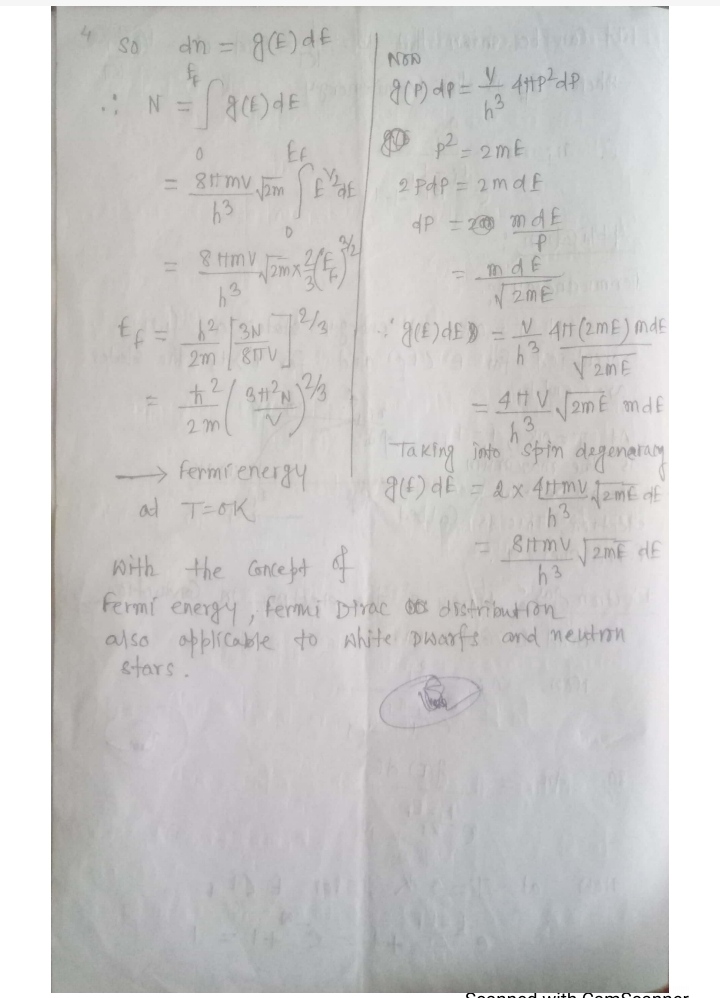 4
so dn = g(E) dE
∴ N = ∫₀^{E_f} g(E) dE
= 8πmV/h³ √2m ∫₀^{E_f} E^{1/2} dE
= 8πmV/h³ √2m × 2/3 (E_F)^{3/2}
E_f = h²/2m [3N/8πV]^{2/3}
= ħ²/2m (3π²N/V)^{2/3}
→ fermi energy
at T=0K
Now
g(P) dP = V/h³ 4πP² dP
P² = 2mE
2PdP = 2mdE
dP = mdE/P
= mdE/√2mE
∵ g(E) dE = V/h³ 4π(2mE) mdE/√2mE
= 4πV/h³ √2mE mdE
Taking into spin degenaracy
g(E) dE = 2 × 4πmV/h³ √2mE dE
= 8πmV/h³ √2mE dE
with the concept of
fermi energy, fermi Dirac distribution
also applicable to white Dwarfs and neutron
stars.